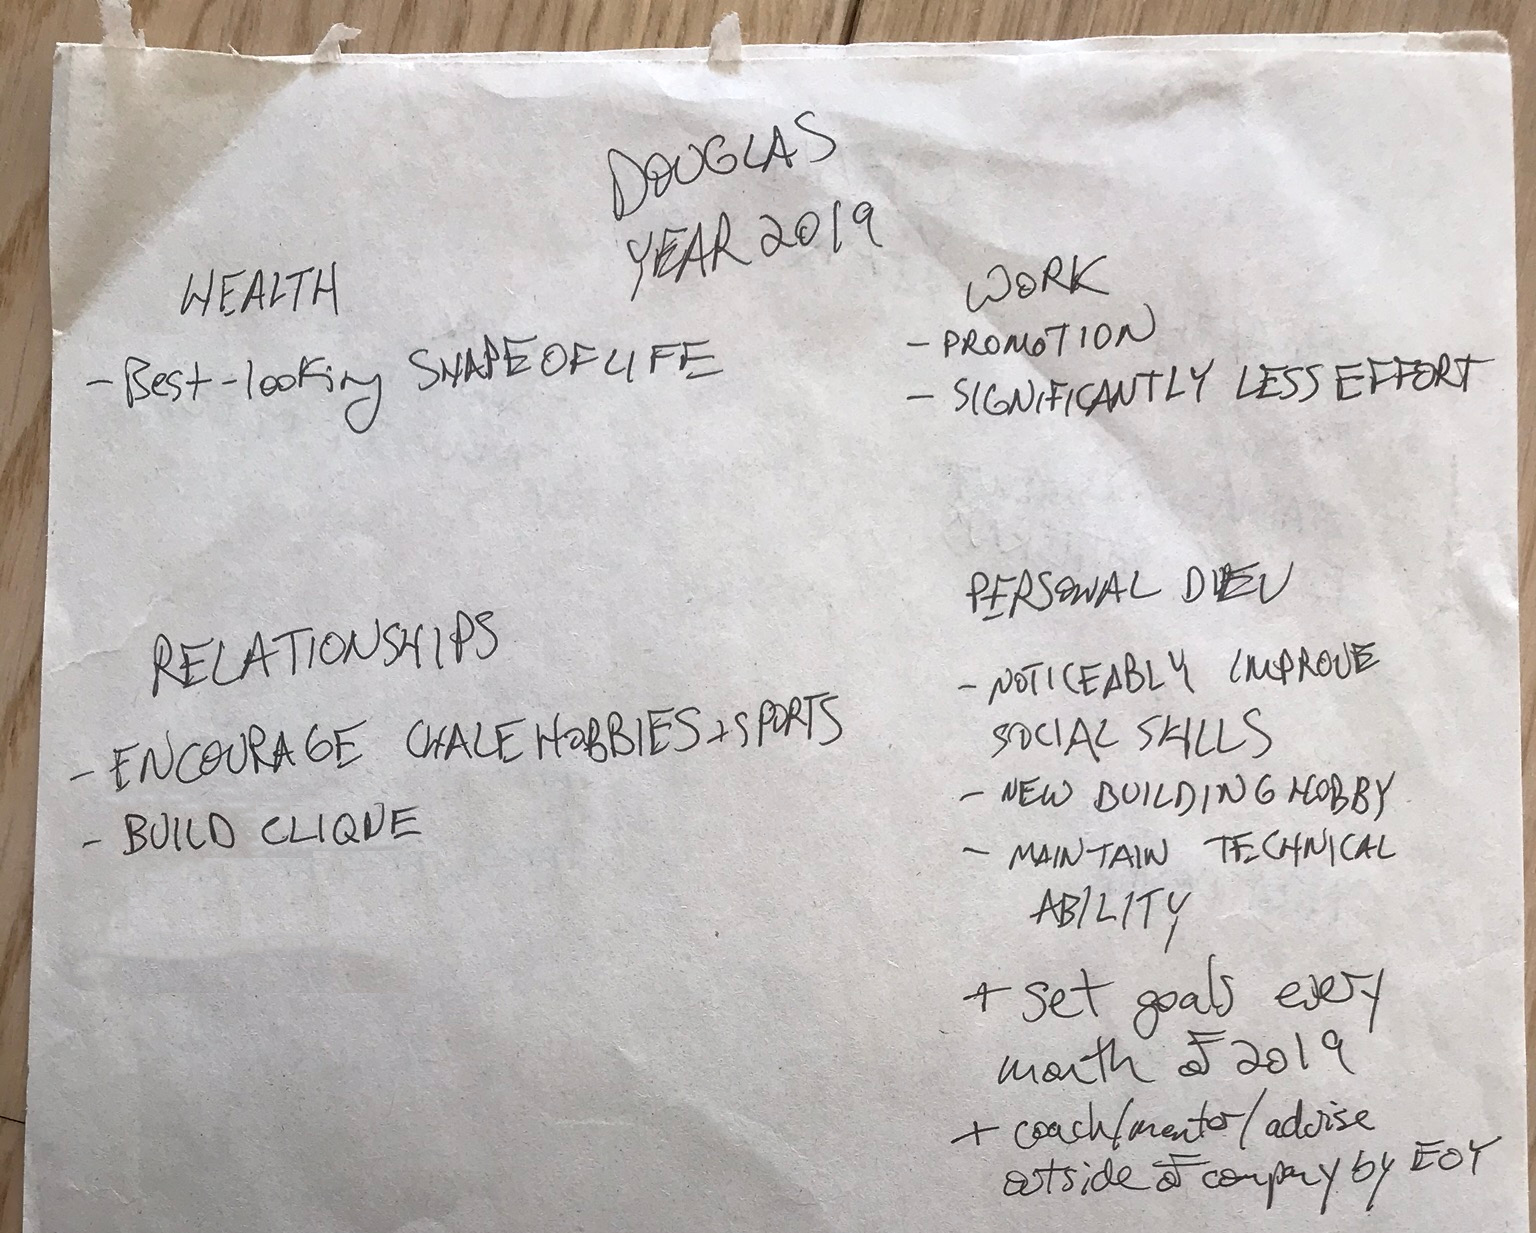 DOUGLAS
YEAR 2019
HEALTH
- Best-looking SHAPE OF LIFE
WORK
- PROMOTION
- SIGNIFICANTLY LESS EFFORT
RELATIONSHIPS
- ENCOURAGE HOBBIES + SPORTS
- BUILD CLIQUE
PERSONAL DEV
- NOTICEABLY IMPROVE
SOCIAL SKILLS
- NEW BUILDING HOBBY
- MAINTAIN TECHNICAL
ABILITY
+ set goals every
month of 2019
+ coach/mentor/advise
outside of company by EOY